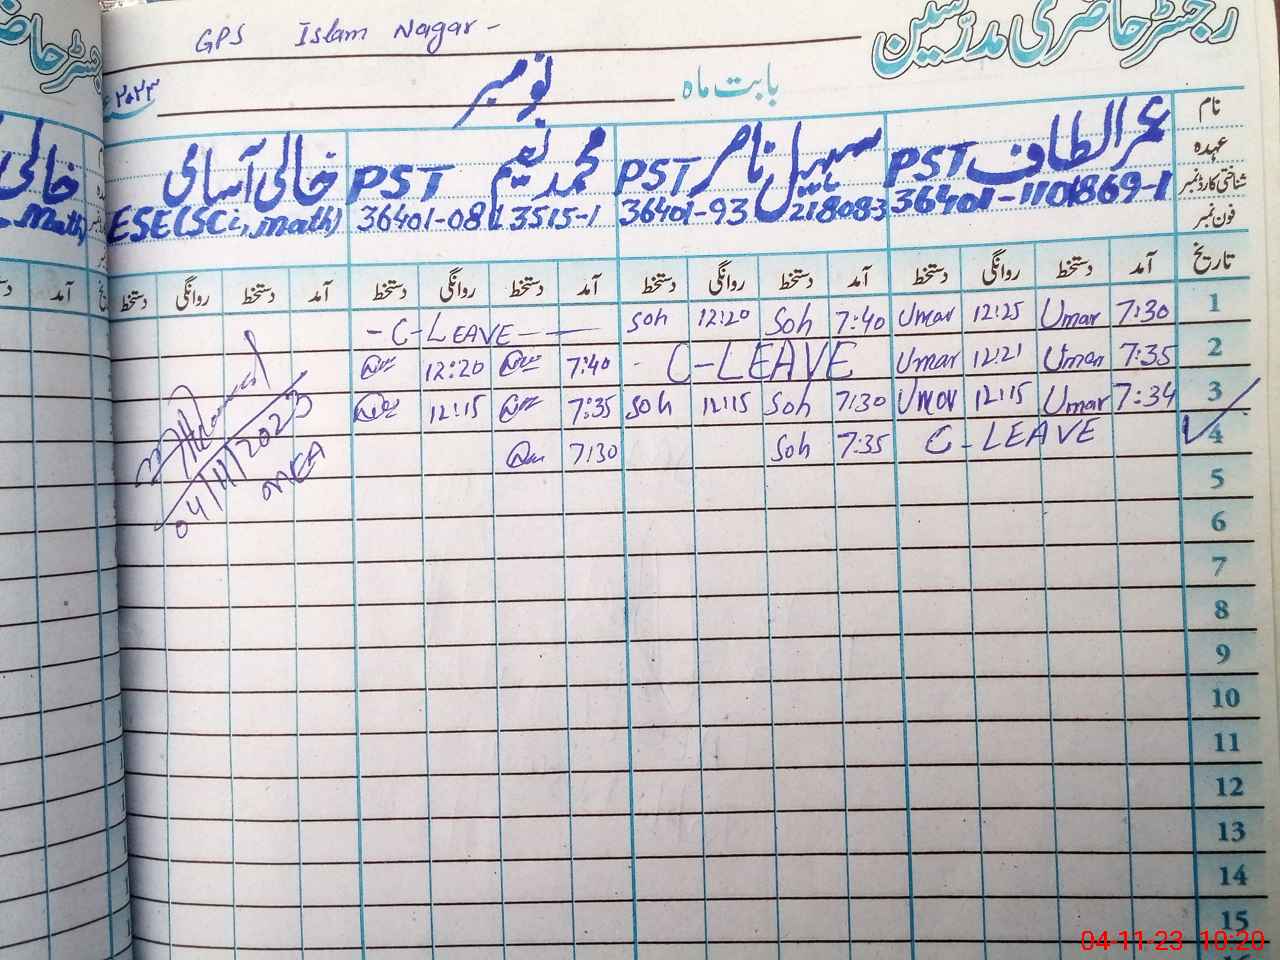 رجسٹر حاضری مدرسین
GPS Islam Nagar -
بابت ماہ نومبر ۲۰۲۳
نام عہدہ شناختی کارڈ نمبر فون نمبر
عمر الطاف PST
36401-1101869-1
سہیل ناصر PST
36401-93 218083
محمد نعیم PST
36401-08 13515-1
خالی آسامی
ESE(SCi, math)
خالی
math)
تاریخ آمد دستخط روانگی دستخط آمد دستخط روانگی دستخط آمد دستخط روانگی دستخط آمد دستخط روانگی دستخط
1 7:30 Umar 12:25 Umar 7:40 Soh 12:20 Soh - C-LEAVE -
2 7:35 Umar 12:21 Umar - C-LEAVE 7:40 12:20
3 7:34 Umar 12:15 Umar 7:30 Soh 12:15 Soh 7:35 12:15
4 C-LEAVE 7:35 Soh 7:30
04/11/2023
MEA
5
6
7
8
9
10
11
12
13
14
15
04-11-23 10:20